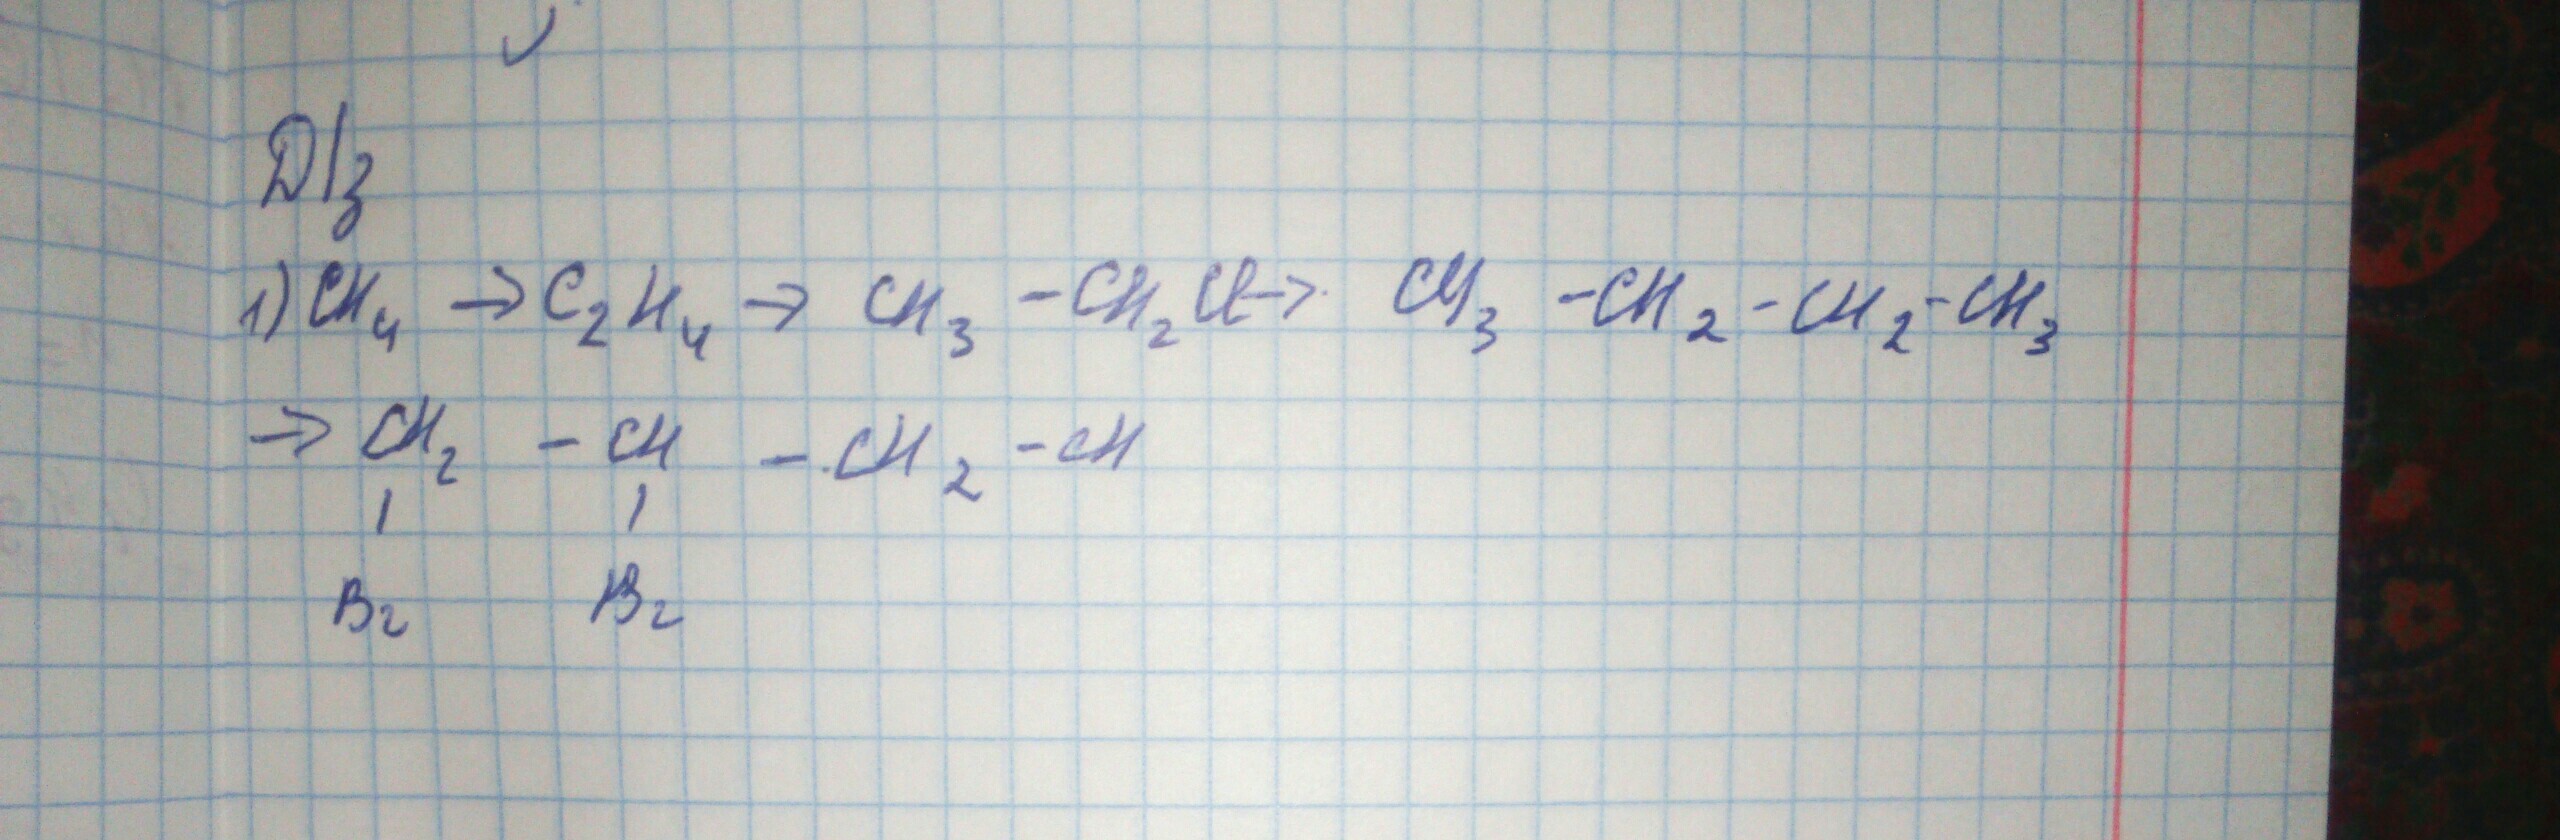 Д/з
1) CH₄ → C₂H₄ → CH₃ - CH₂Cl → CH₃ - CH₂ - CH₂ - CH₃
→ CH₂ - CH - CH₂ - CH
| |
Br Br